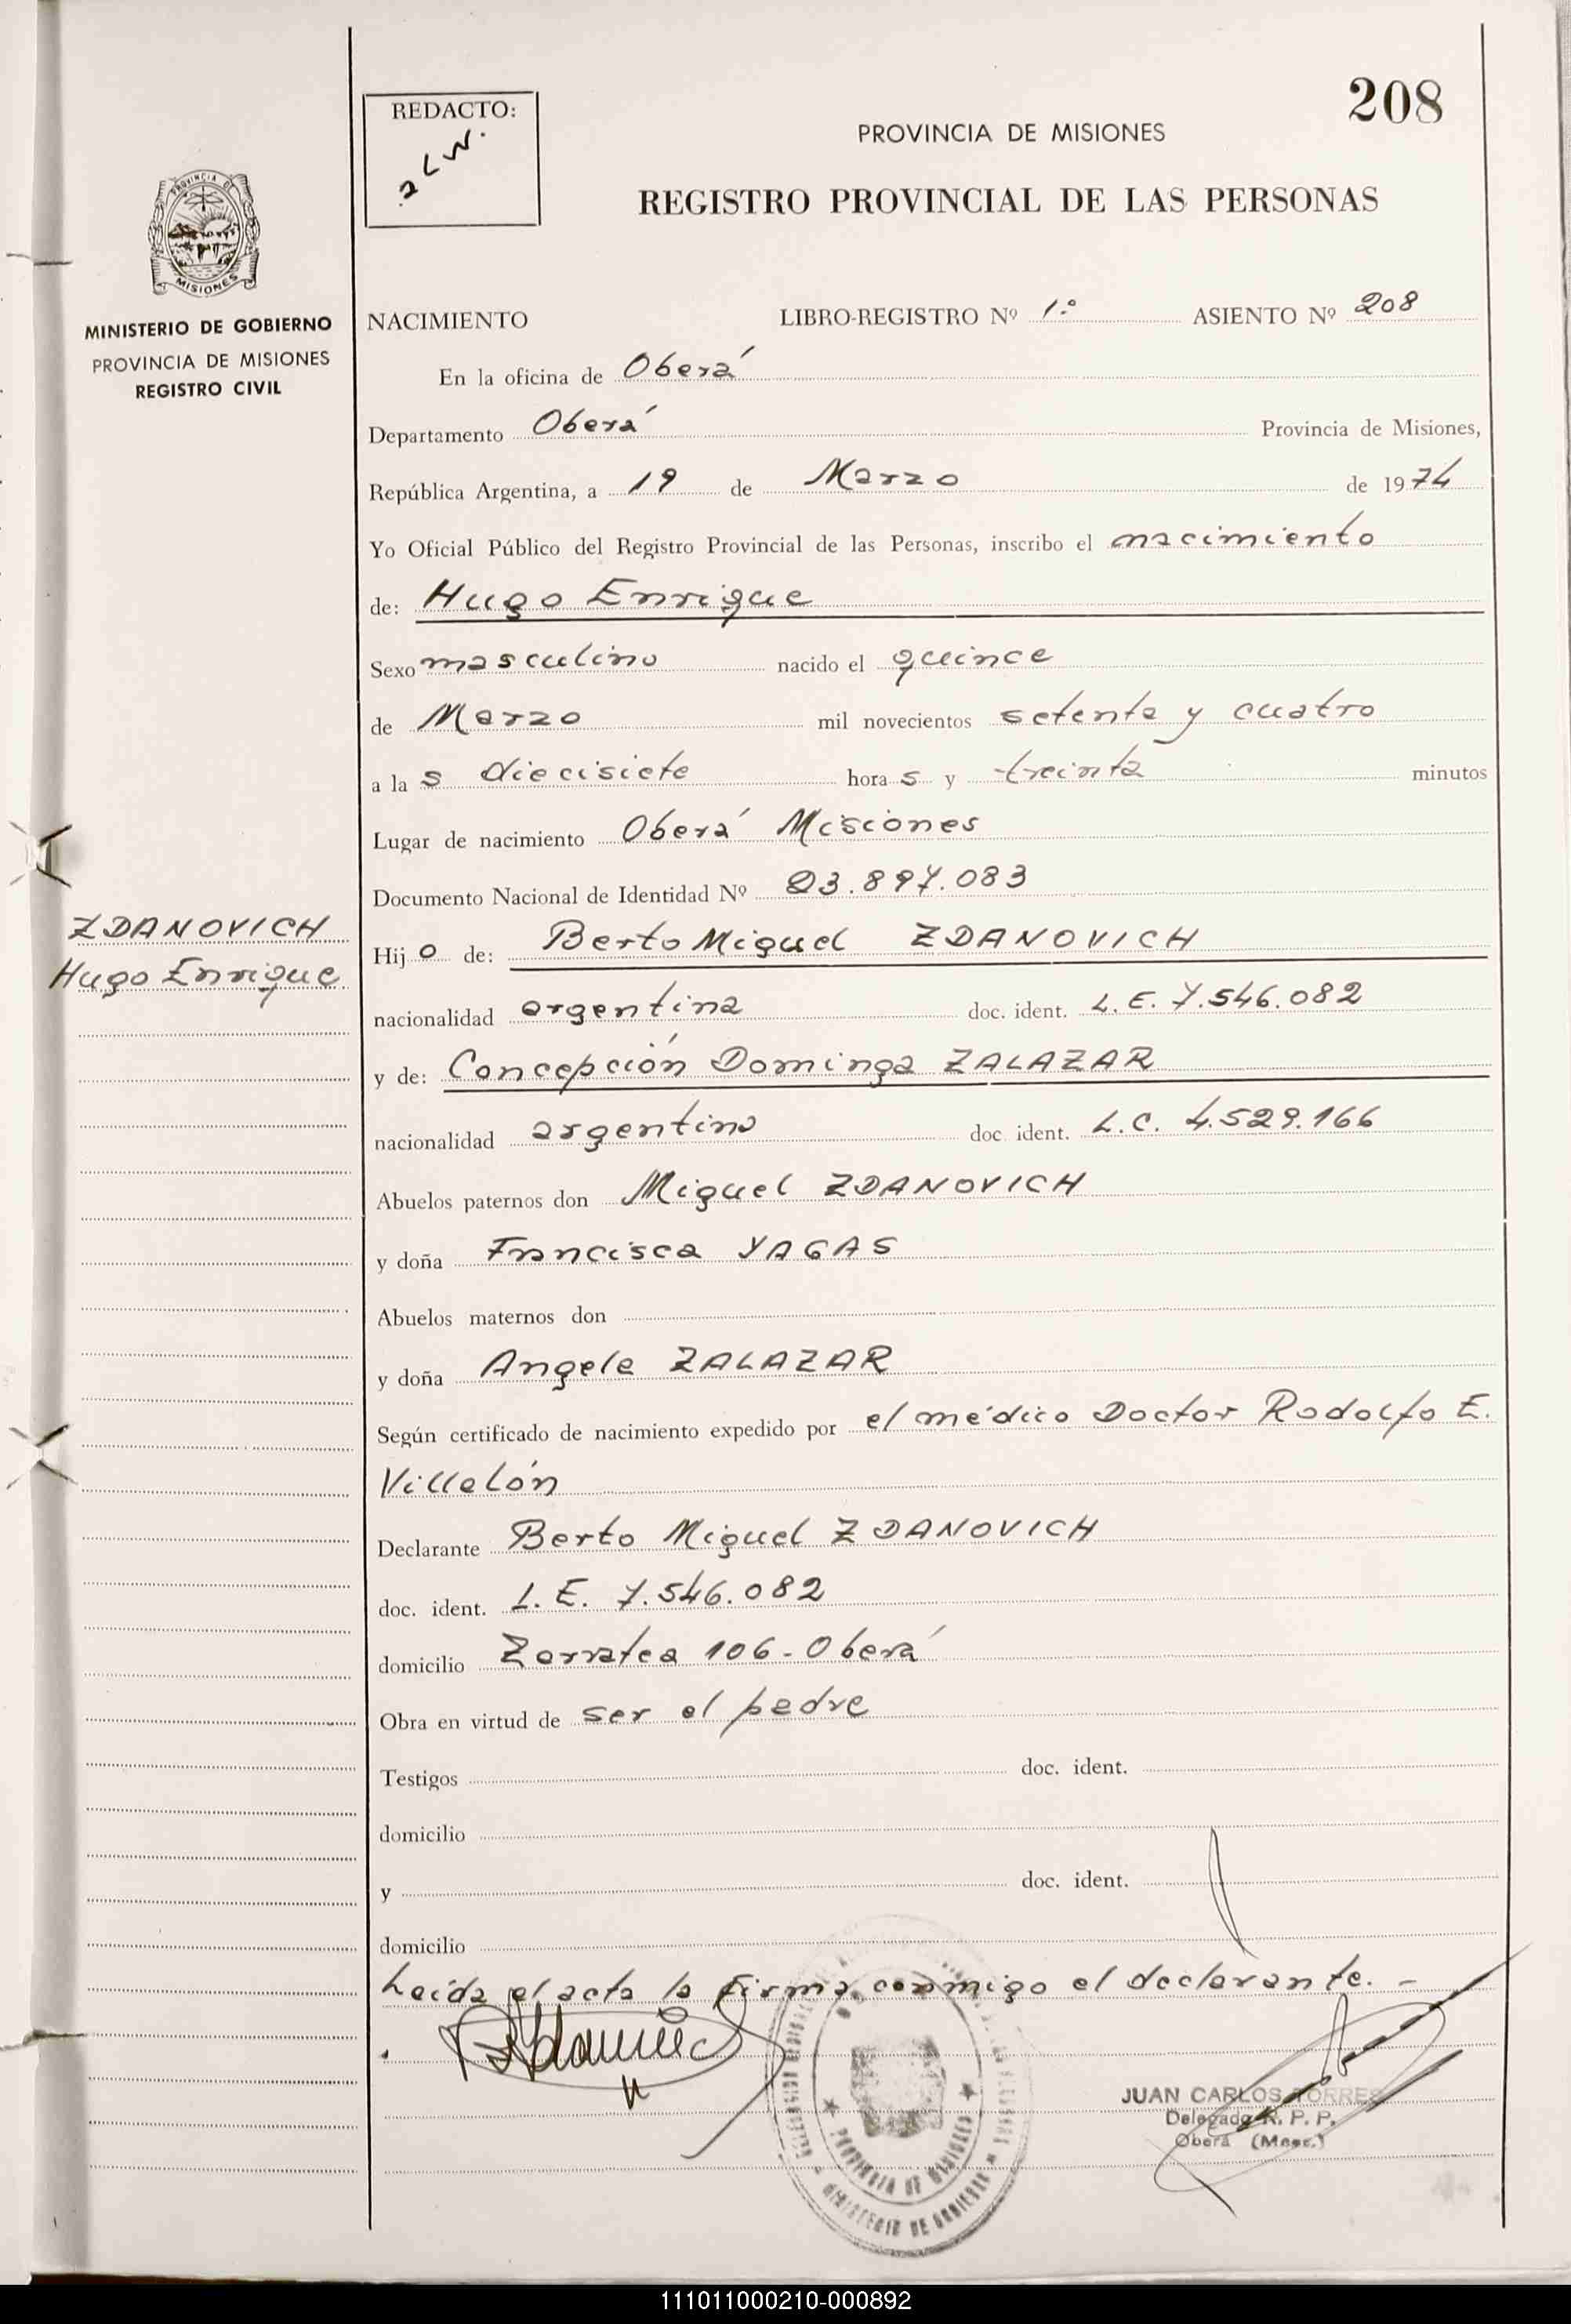 208
REDACTO:
PROVINCIA DE MISIONES
REGISTRO PROVINCIAL DE LAS PERSONAS
PROVINCIA DE
MISIONES
MINISTERIO DE GOBIERNO
PROVINCIA DE MISIONES
REGISTRO CIVIL
NACIMIENTO LIBRO-REGISTRO Nº 1.º ASIENTO Nº 208
En la oficina de Oberá
Departamento Oberá Provincia de Misiones,
República Argentina, a 19 de Marzo de 1974
Yo Oficial Público del Registro Provincial de las Personas, inscribo el nacimiento
de: Hugo Enrique
Sexo masculino nacido el quince
de Marzo mil novecientos setenta y cuatro
a la s diecisiete hora s y treinta minutos
Lugar de nacimiento Oberá Misiones
Documento Nacional de Identidad Nº 23.897.083
ZDANOVICH
Hugo Enrique
Hij o de: Berto Miguel ZDANOVICH
nacionalidad argentina doc. ident. L.E. 7.546.082
y de: Concepción Dominga ZALAZAR
nacionalidad argentina doc. ident. L.C. 4.529.166
Abuelos paternos don Miguel ZDANOVICH
y doña Francisca YAGAS
Abuelos maternos don
y doña Angela ZALAZAR
Según certificado de nacimiento expedido por el médico Doctor Rodolfo E.
Villalón
Declarante Berto Miguel ZDANOVICH
doc. ident. L.E. 7.546.082
domicilio Zarratea 106-Oberá
Obra en virtud de ser el padre
Testigos doc. ident.
domicilio
y doc. ident.
domicilio
Leída el acta la firma conmigo el declarante.-
JUAN CARLOS TORRES
Delegado R. P. P.
Oberá (Mnes.)
PROVINCIA DE MISIONES
MINISTERIO DE GOBIERNO
111011000210-000892